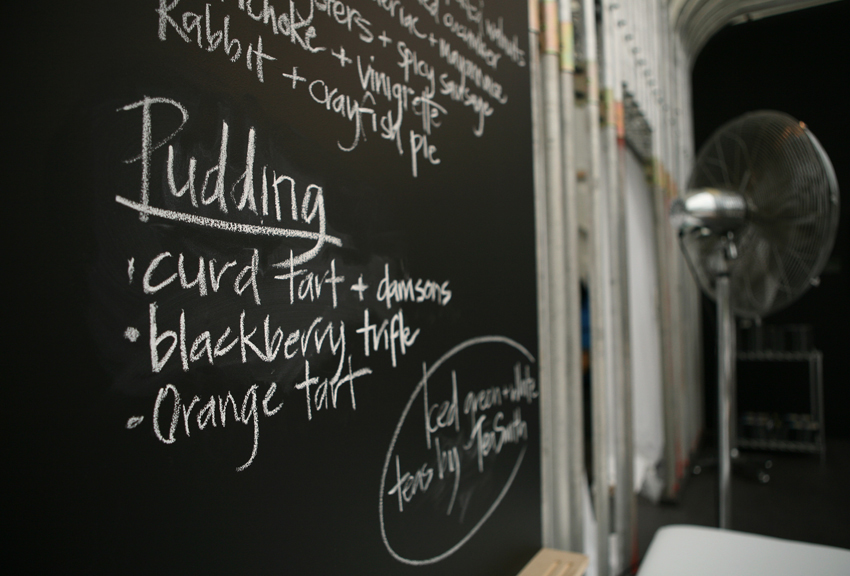 walnuts
cucumber
+ mayonnaise
choke + spicy sausage
Rabbit + vinigrette
+ crayfish pie
Pudding
· curd tart + damsons
· blackberry trifle
· Orange tart
Iced green + white
teas by TeaSmith